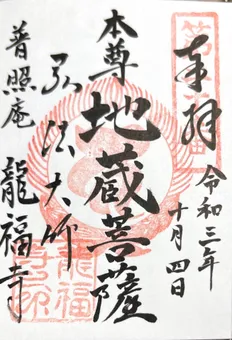 奉拝
令和三年
十月四日
本尊
地蔵菩薩
弘法大師
普照庵
龍福寺
龍福
寺印